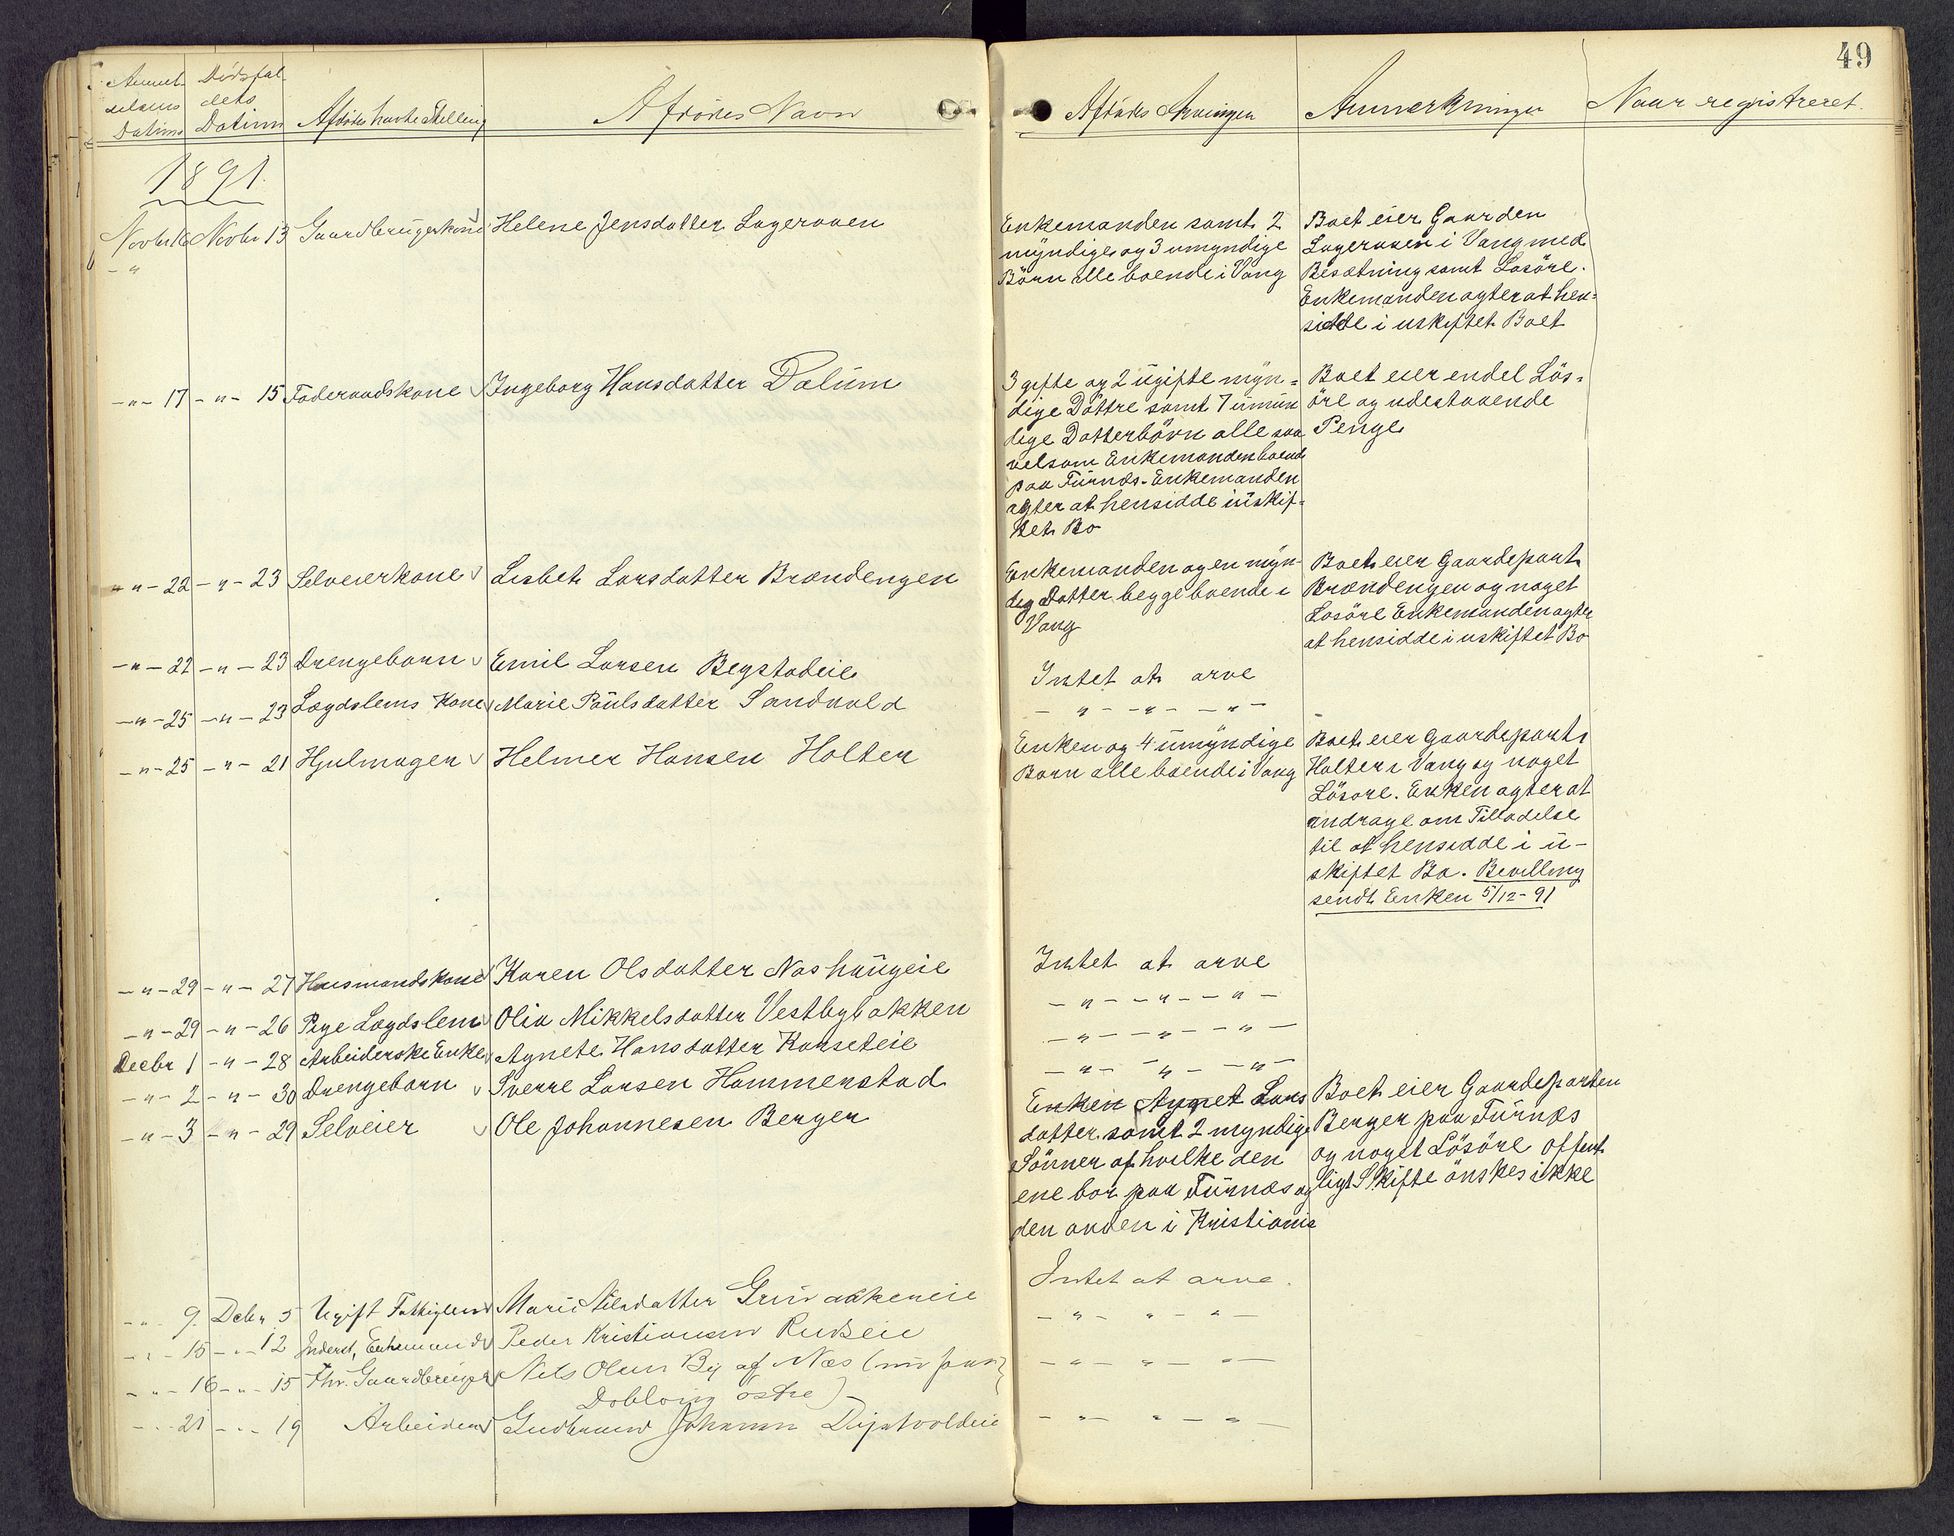 49
Anmel- Dødsfal-
delsens dets
Datum Datum Afdødes havte Stilling Afdødes Navn Afdødes Arvinger Anmerkninger Naar registreret.
1891.
Novbr 16 Novbr 13 Gaardbrugerkone Helene Jensdatter Lageraaen
Enkemanden samt 2
myndige og 3 umyndige
Børn alle boende i Vang
Boet eier Gaarden
Lageraaen i Vang med
Besætning samt Løsöre.
Enkemanden agter at hen-
sidde i uskiftet Boet
-"- 17 -"- 15 Föderaadskone Ingeborg Hansdatter Dælum
3 gifte og 2 ugifte myn-
dige Döttre samt 7 umün
dige Datterbörn alle saa
velsom Enkemanden boende
paa Fürnæs - Enkemanden
agter at hensidde i üskif-
tet Bo
Boet eier endel Lös-
öre og udestaaende
Penge
-"- 22 -"- 23 Selveierkone Lisbet Larsdatter Brændengen
Enkemanden og en myn-
dig Datter begge boende i
Vang
Boet eier Gaardepart
Brændengen og noget
Løsöre Enkemanden agter
at hensidde i uskiftet Bo
-"- 22 -"- 23 Drengebarn Emil Larsen Begstadeie
Intet at arve
-"- 25 -"- 23 Lægdslems Kone Marie Paulsdatter Sandvold
- " - - " - - " -
-"- 25 -"- 21 Hjulmager Helmer Hansen Holter
Enken og 4 umyndige
Børn alle boende i Vang
Boet eier Gaardepart
Holter i Vang og noget
Lösöre. Enken agter at
andrage om Tilladelse
til at hensidde i ü-
skiftet Bo. Bevilling
sendt Enken 5/12-91
-"- 29 -"- 27 Husmandskone Karen Olsdatter Nashaugeie
Intet at arve
-"- 29 -"- 26 Pige Lægdslem Olia Mikkelsdatter Vestbybakken
- " - - " - - " -
Decbr 1 -"- 28 Arbeiderske Enke Agnete Hansdatter Korseteie
- " - - " - - " -
-"- 2 -"- 30 Drengebarn Sverre Larsen Hammerstad
- " - - " - - " -
-"- 3 -"- 29 Selveier Ole Johannesen Berger
Enken Agnet Lars
datter samt 2 myndige
Sönner af hvilke den
ene bor paa Fürnæs og
den anden i Kristiania
Boet eier Gaardeparten
Berger paa Fürnæs
og noget Lösöre offent
ligt Skifte önskes ikke
-"- 9 Debr 5 Ugift Fattiglem Marie Nilsdatter Grünakkeneie
Intet at arve.
-"- 15 -"- 12 Inderst, Enkemand Peder Kristiansen Rudseie
- " - " - " -
-"- 16 -"- 15 Fhv. Gaardbruger Nils Olsen By af Næs (nu paa
Dobloug østre)
- " - " - " -
-"- 21 -"- 19 Arbeider Gudbrand Johansen Digstvoldeie
- " - " - " -